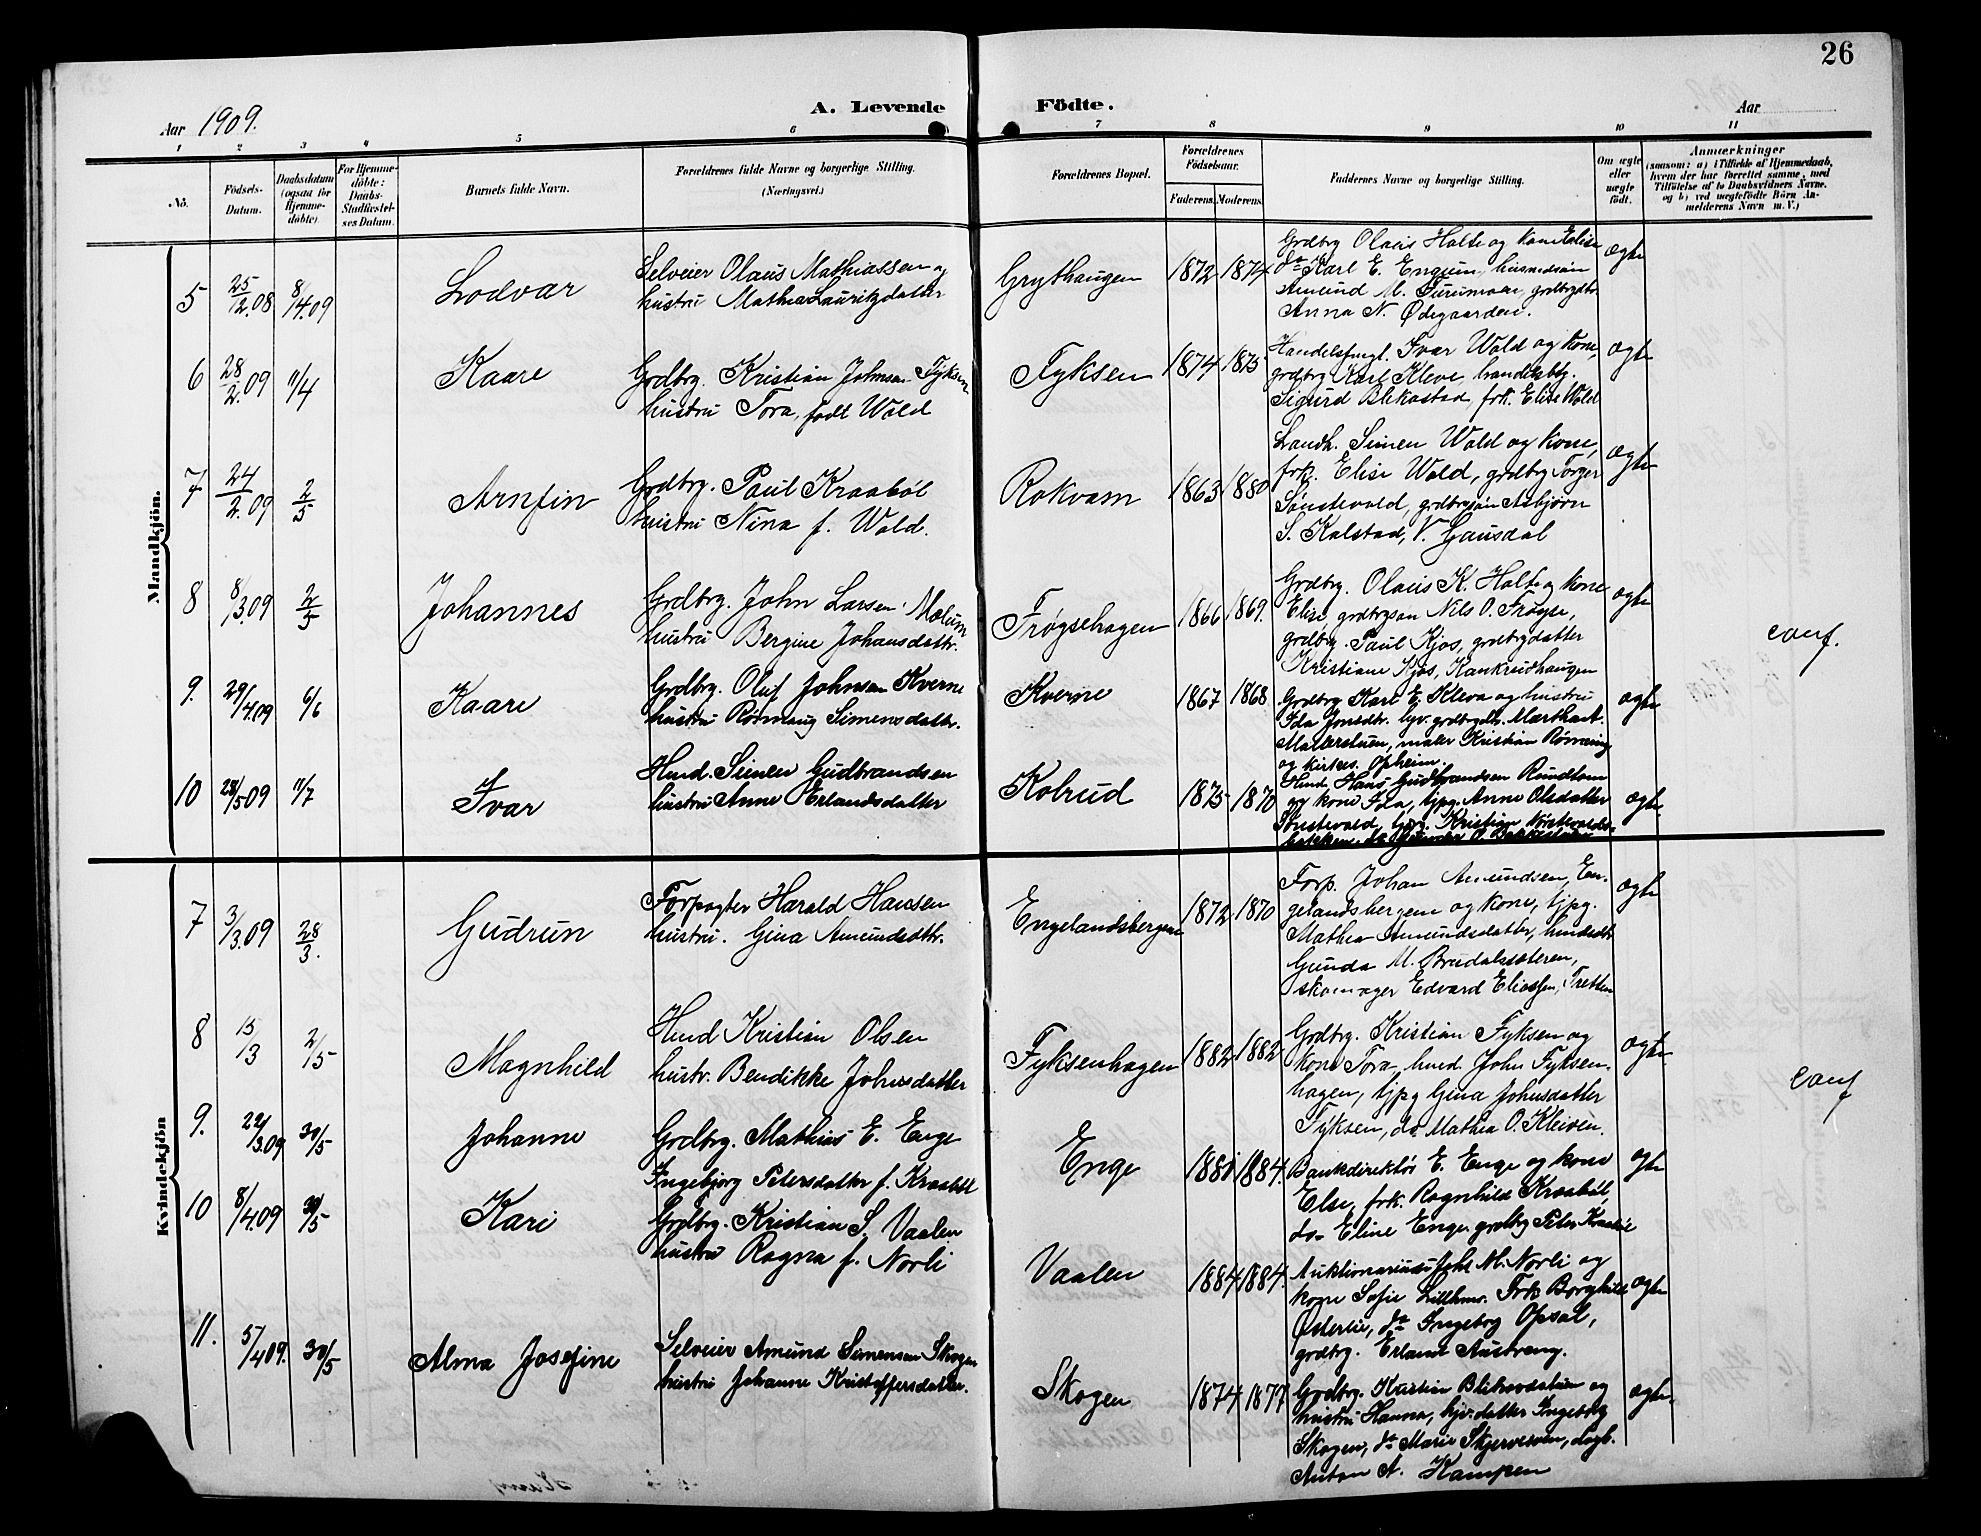 26
A. Levende Födte.
Aar 1909.
Aar
1 2 3 4 5 6 7 8 9 10 11
No.
Födsels-
Datum.
Daabsdatum
(ogsaa for
Hjemme-
döbte).
For Hjemme-
döbte:
Daabs-
Stadfæstel-
ses Datum.
Barnets fulde Navn.
Forældrenes fulde Navne og borgerlige Stilling.
(Næringsvei.)
Forældrenes Bopæl.
Forældrenes
Födselsaar.
Faderens. Moderens.
Faddernes Navne og borgerlige Stilling.
Om ægte
eller
uægte
født.
Anmærkninger
(saasom: a) i Tilfælde af Hjemmedaab,
hvem der har forrettet samme, med
Tilföielse af to Daabsvidners Navne,
og b) ved uægtefödte Börn An-
melderens Navn m. V.)
Mandkjön.
5 25/2.08 8/4.09 Lodvar
Selveier Olaus Mathiassen og
hustru Mathea Lauritzdatter
Grythaugen 1872 1874
Grdbrg Olaus Holte og kone Elise
do Karl E. Engum, husmdsøn
Amund M. Furumoen, grdbrgdtr.
Anna N. Ødegaarden.
ægte
6 28/2.09 11/4 Kaare
Grdbrg. Kristian Johnsen Fyksen
hustru Tora, født Wold
Fyksen 1874 1875
Handelsfuldm. Ivar Wold og kone,
grdbrg Karl Kleve, handelsbtj.
Sigurd Blikastad, frk. Elise Wold
ægte
7 24/2.09 2/5 Arnfin
Grdbrg. Paul Kraabøl
hustru Nina f. Wold.
Rokvam 1863 1880
Landh. Simen Wold og kone,
frk. Elise Wold, grdbrg Torger
Sønstevold, grdbrgsøn Asbjørn
S. Kalstad, V. Gausdal
ægte
8 8/3.09 2/5 Johannes
Grdbrg. John Larsen Mælum
hustru Bergine Johansdattr.
Frøgsehagen 1866 1869.
Grdbrg. Olaus K. Holte og kone
Elise, grdbrgsøn Nils O. Frøgse,
grdbrg. Paul Kjos, grdbrgdatter
Kristiane Kjos, Kankrudhaugen
ægte
conf.
9. 29/4.09 6/6 Kaare
Grdbrg. Oluf Johnsen Kverne
hustru Rønnaug Simensdattr.
Kverne 1867 1868
Grdbrg Karl E. Kleva og hustru
Ida Jonsdtr.
maler Kristian
Opheim.
ægte
10 28/5.09 11/7 Ivar
Hmd. Simen Gudbrandsen
hustru Anne Erlandsdatter
Kolrud 1875 1870
Hmd Hans Gudbrandsen Rundtom
og kone Ida, tjpg. Anne Olsdatter
Sønstevold, Kristian
ægte.
Kvindekjön
7 3/3.09 28/3. Gudrun
Forpagter Harald Hansen
hustru. Gina Amundsdtr.
Engelandsbergene 1872 1870
Forp. Johan Amundsen, En-
gelandsbergene og kone, tjpg.
Mathea Amundsdatter, hmdsdtr
Gunda M. Brudalsæteren,
skomager Edvard Eliassen, Tretten
ægte
8 15/3 2/5 Magnhild
Hmd Kristian Olsen
hustr. Bendikke Johnsdatter
Fyksenhagen 1882 1882
Grdbrg. Kristian Fyksen og
kone Tora, hmd. John Fyksen-
hagen, tjpg Gina Johnsdatter
Fyksen, do Mathea O. Kleiven.
ægte
conf
9. 22/3.09 30/5 Johanne
Grdbrg. Mathias E. Enge
Ingebjørg Petersdatter f. Kraabøl
Enge 1881 1884.
Bankdirektør E. Enge og kone
Else, frk. Ragnhild Kraabøl,
do Eline Enge, grdbrg Peter Kraabøl
ægte
10 8/4.09 30/5 Kari
Grdbrg. Kristian S. Vaalen
hustru Ragna f. Norli
Vaalen 1884 1884.
Auktionarius Johs M. Norli og
kone Sofie Lillhmr. Frk Borghild
Østerlie, do Ingeborg Opsal,
grdbrg. Erland Austreng.
ægte
11. 5/4.09. 30/5 Alma Josefine
Selveier Amund Simensen Skogen
hustru Johanne Kristoffersdatter.
Skogen 1874 1877
Grdbrg. Kristian og
hustru Hanna, datter Ingeborg
Skogen, do Marie
Anton A. Kampen
ægte.